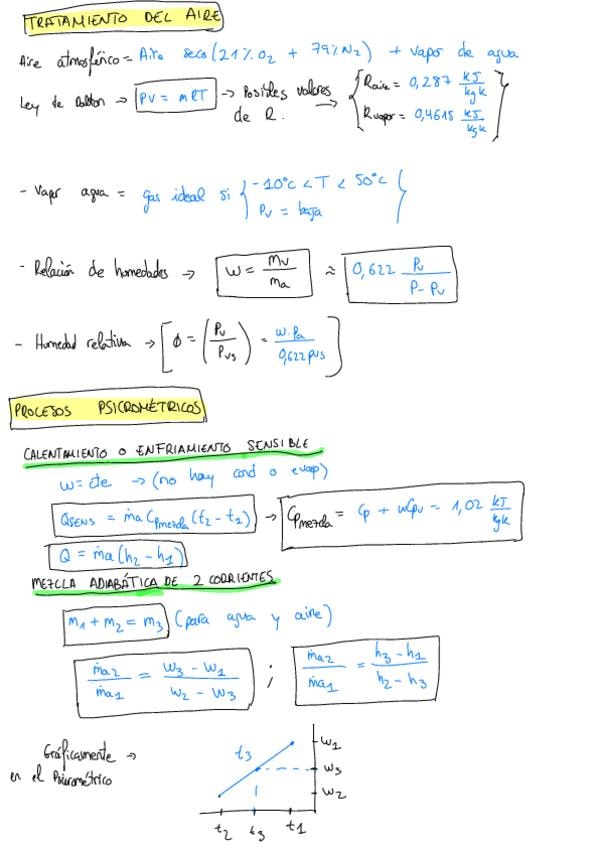 TRATAMIENTO DEL AIRE
Aire atmosférico = Aire seco (21% O₂ + 79% N₂) + vapor de agua
Ley de Dalton → PV = mRT → Posibles valores de R. → { Raire = 0,287 kJ/kgK
Rvapor = 0,4615 kJ/kgK }
- Vapor agua = gas ideal si { -10°C < T < 50°C
Pv = baja }
- Relación de humedades → w = mv/ma ≈ 0,622 Pv/(P - Pv)
- Humedad relativa → [ ϕ = (Pv/Pvs) = w·Pa/(0,622 pvs) ]
PROCESOS PSICROMÉTRICOS
CALENTAMIENTO O ENFRIAMIENTO SENSIBLE
w = cte → (no hay cond o evap)
QSENS = ṁa Cpmezcla (t2 - t1) → Cpmezcla = Cp + wCpv = 1,02 kJ/kgK
Q = ṁa (h2 - h1)
MEZCLA ADIABÁTICA DE 2 CORRIENTES
m1 + m2 = m3 (para agua y aire)
ṁa2/ṁa1 = (w3 - w1)/(w2 - w3) ; ṁa2/ṁa1 = (h3 - h1)/(h2 - h3)
Gráficamente →
en el Psicrométrico
t3
w1
w3
w2
t2 t3 t1